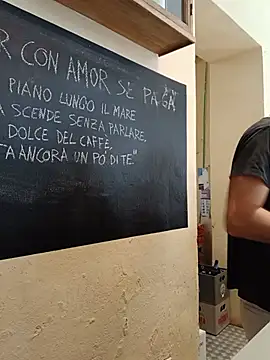 R CON AMOR SE PAGA
PIANO LUNGO IL MARE
A SCENDE SENZA PARLARE,
DOLCE DEL CAFFÈ,
TA ANCORA UN PO' DI TE."